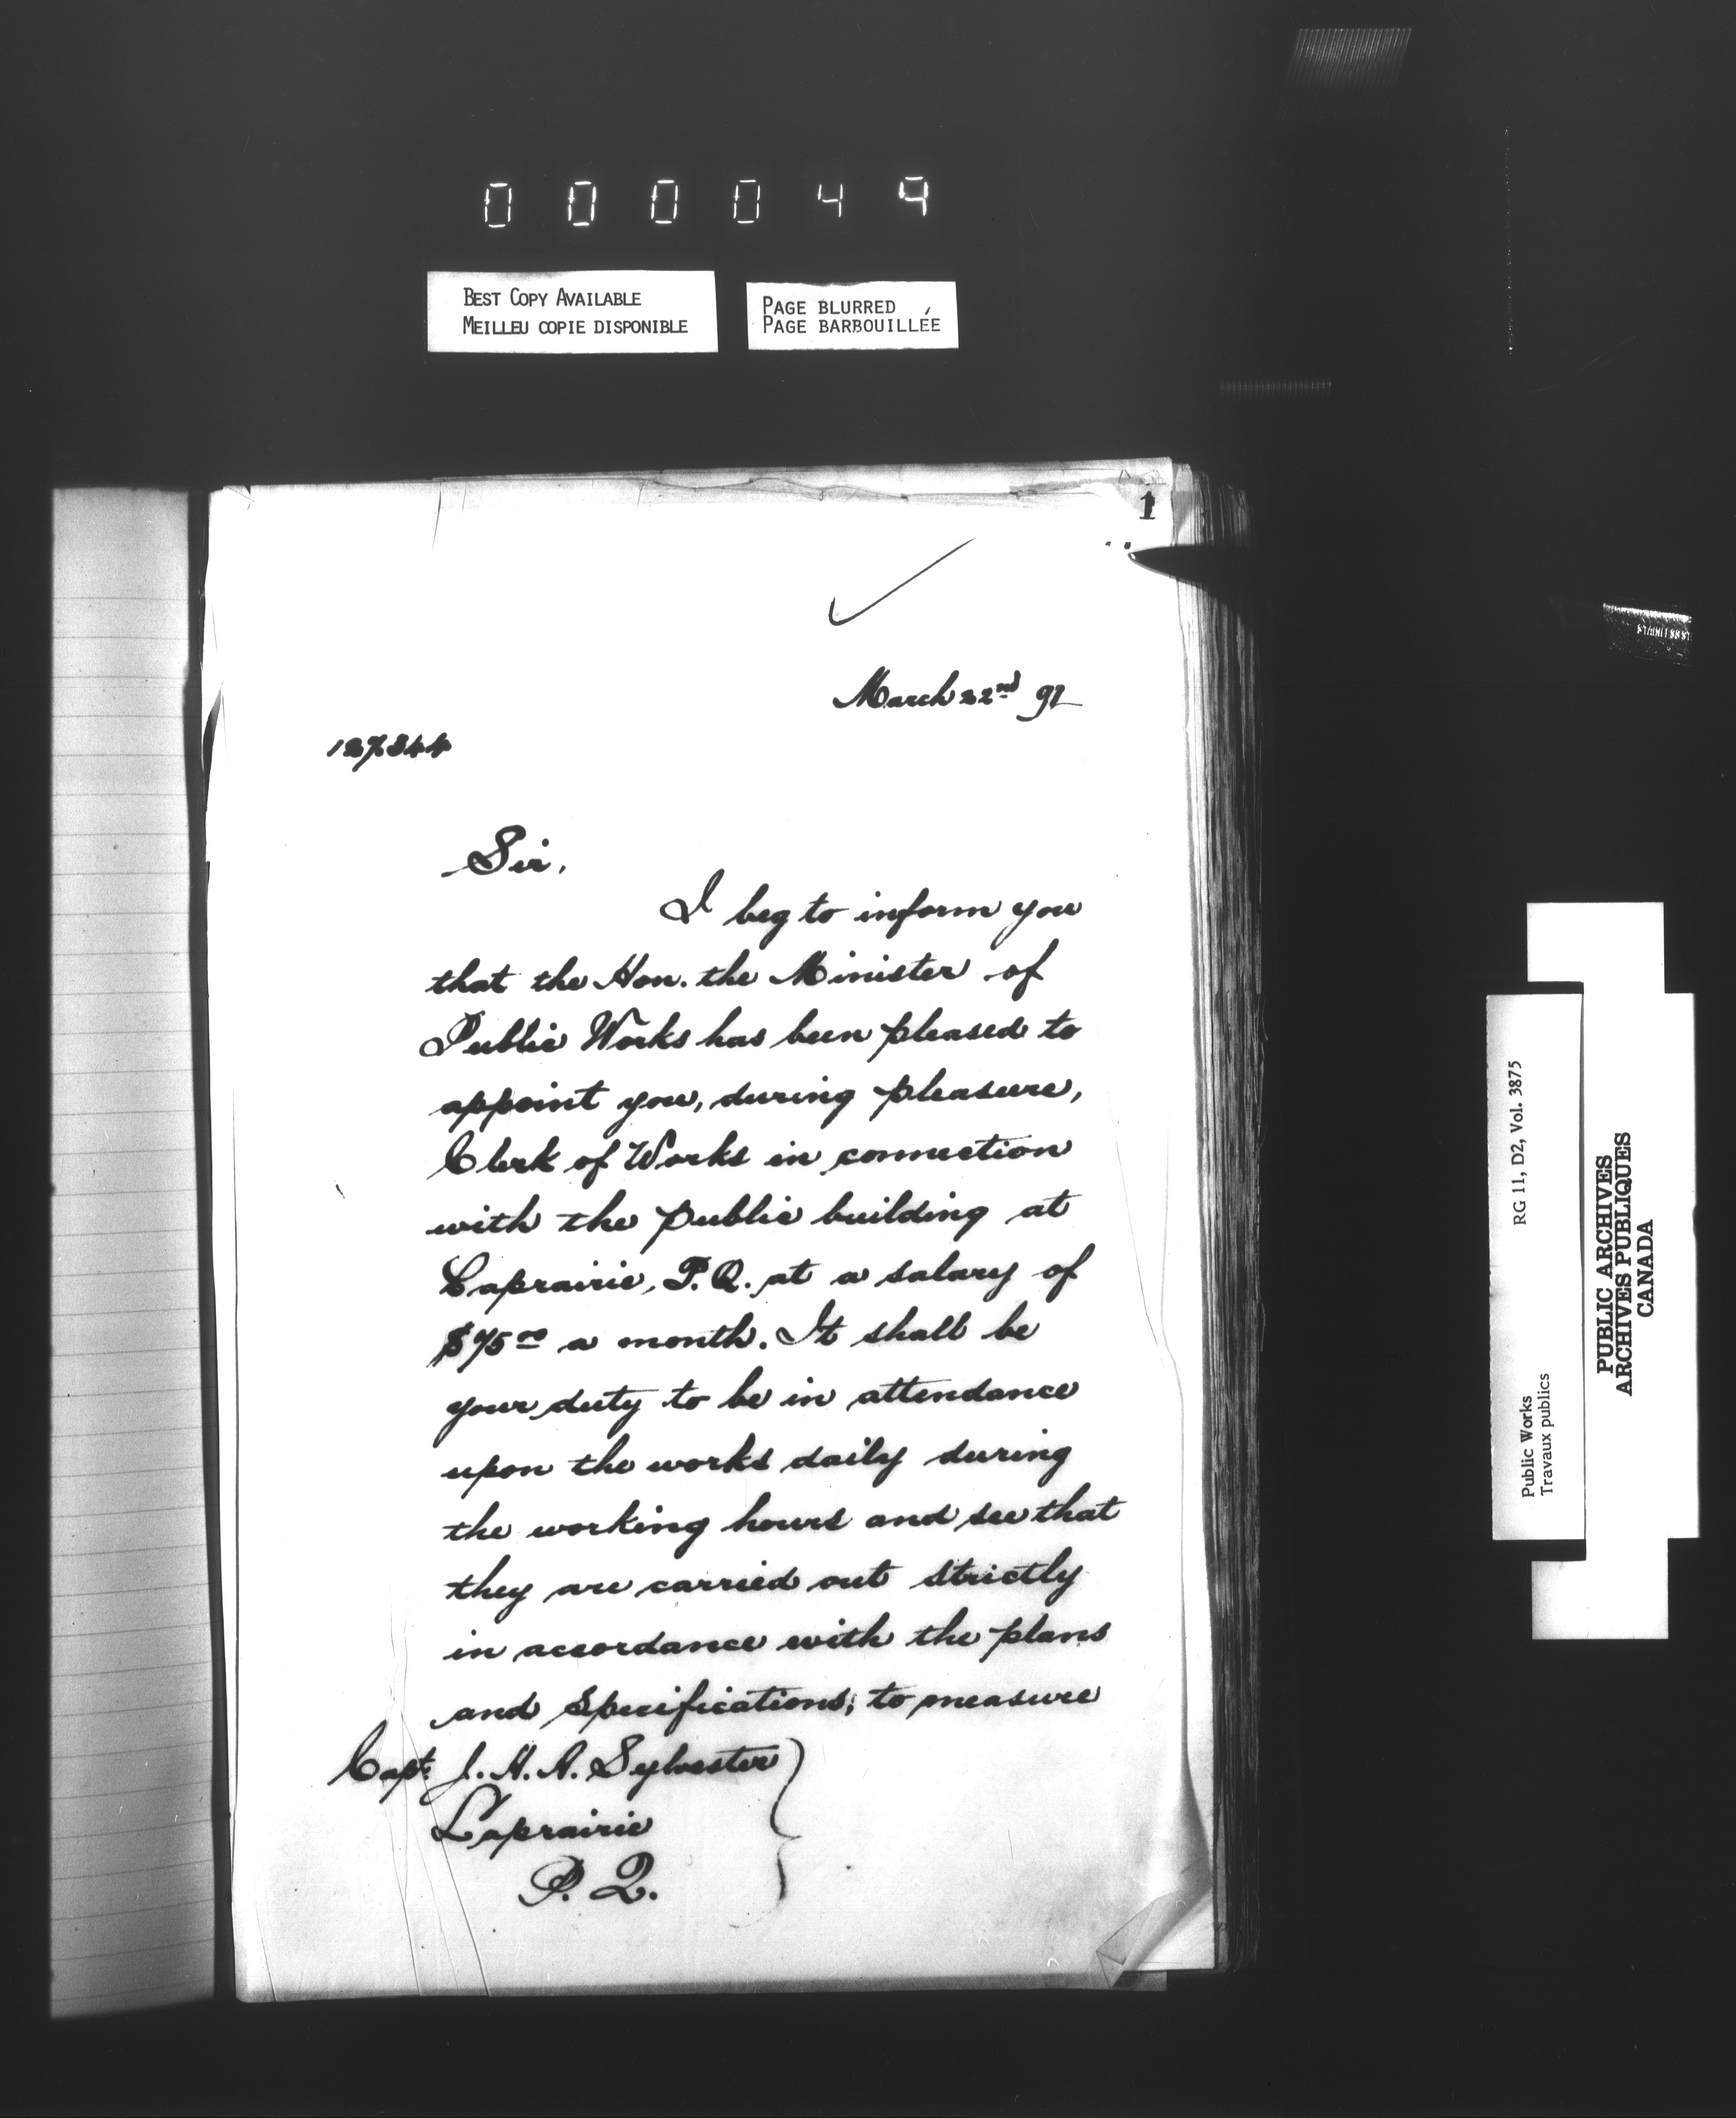 000049
BEST COPY AVAILABLE
MEILLEU COPIE DISPONIBLE
PAGE BLURRED
PAGE BARBOUILLÉE
1
March 22nd 92
127344
Sir,
I beg to inform you
that the Hon. the Minister of
Public Works has been pleased to
appoint you, during pleasure,
Clerk of Works in connection
with the public building at
Laprairie, P.Q. at a salary of
$75.00 a month. It shall be
your duty to be in attendance
upon the works daily during
the working hours and see that
they are carried out strictly
in accordance with the plans
and Specifications; to measure
Capt. J. H. A. Sylvester
Laprairie
P. Q.
Public Works
Travaux publics
RG 11, D2, Vol. 3875
PUBLIC ARCHIVES
ARCHIVES PUBLIQUES
CANADA